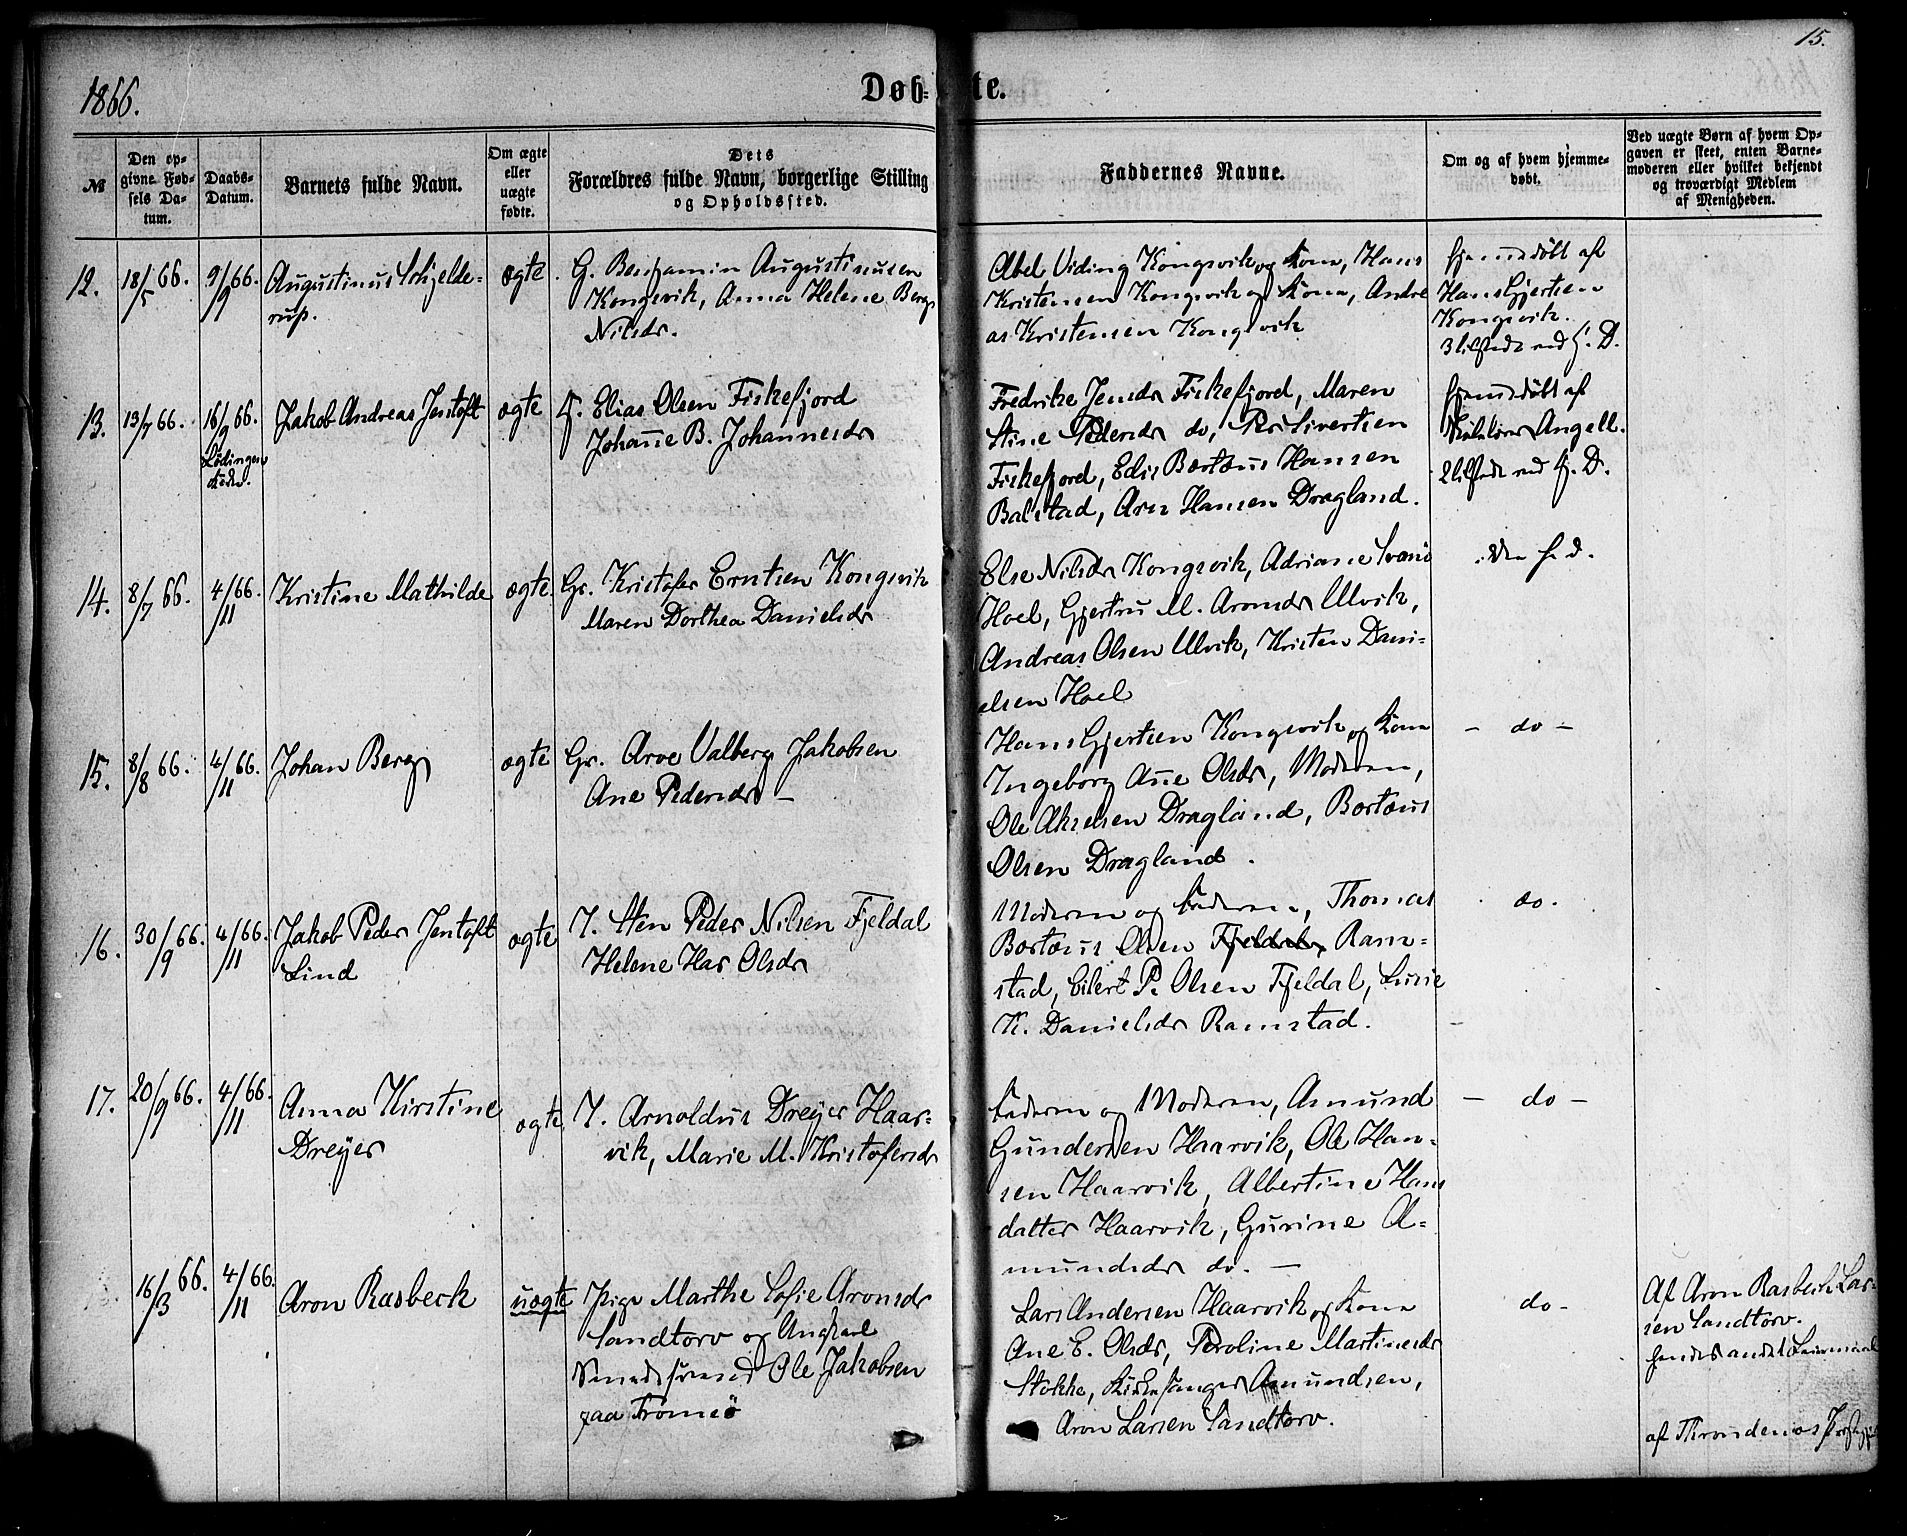 15.
1866.
Døbte.
№
Den op-
givne Fød-
sels Da-
tum.
Daabs-
Datum.
Barnets fulde Navn.
Om ægte
eller
uægte
fødte.
Dets
Forældres fulde Navn, borgerlige Stilling
og Opholdssted.
Faddernes Navne.
Om og af hvem hjemme-
døbt.
Ved uægte Børn af hvem Op-
gaven er skeet, enten Barne-
moderen eller hvilket bekjendt
og troværdigt Medlem
af Menigheden.
12.
18/5 66.
9/9 66.
Augustinus Schjelde-
rup.
ægte
G. Benjamin Augustinusen
Kongsvik, Anna Helene Berg
Nilsdr.
Abel Viding Kongsvik og Kone, Hans
Kristensen Kongsvik og Kone, Andre
as Kristensen Kongsvik
hjemmedøbt af
Hans Gjertsen
Kongsvik.
3 tilstede ved H. D.
13.
13/7 66.
16/9 66.
Lødingen
Kirke.
Jakob Andreas Jentoft
ægte
Elias Olsen Fiskefjord
Johanne B. Johannesdr
Fredrike Jensdr Fiskefjord, Maren
Stine Pedersdr do, Per Sivertsen
Fiskefjord, Edis Bartæus Hansen
Balstad, Arn Hansen Dragland.
hjemmedøbt af
Angell.
2 tilstede ved Hj. D.
14.
8/7 66.
4/11 66.
Kristine Mathilde
ægte.
Gr. Kristofer Erntsen Kongsvik
Maren Dorthea Danielsdr
Else Nilsdr Kongsvik, Adriane
Hoel, Gjertru M. Aronsdr Ulvik,
Andreas Olsen Ulvik, Kristen Dani-
elsen Hoel
15.
8/8 66.
4/11 66.
Johan Berg
ægte
Gr. Arve Valberg Jakobsen
Ane Pedersdr –
Hans Gjertsen Kongsvik og Kone
Ingeborg Ane Olsdr, Moderen,
Ole Akselsen Dragland, Bartæus
Olsen Dragland.
– do –
16.
30/9 66.
4/11 66.
Jakob Peder Jentoft
Lind
ægte
I. Sten Peder Nilsen Fjeldal
Helene Has Olsdr
Moderen og Faderen, Thomas
Bartæus Olsen Fjeldal, Ram-
stad, Eilert P. Olsen Fjeldal, Lusie
K. Danielsdr Ramstad.
do.
17.
20/9 66.
4/11 66.
Anna Kirstine
Dreyer
ægte
I. Arnoldus Dreyer Haar-
vik, Marie M. Kristofersdr
Faderen og Moderen, Asmund
Gundersen Haarvik, Ole Han-
sen Haarvik, Albertine Hans
datter Haarvik, Gurine A-
mundsdr do. –
– do –
16/3 66.
4/11 66.
Aron Rasbeck
uægte
Pige Marthe Sofie Aronsdr
Sandtorv og Ungkarl
Ole Jakobsen
paa Tromsø
Lars Andersen Haarvik og Kone
Ane E. Olsdr, Peroline Martinusdr
Stokke, Kirkesanger Amundsen,
Aron Larsen Sandtorv.
do –
Af Aron Rasbeck Lar-
sen Sandtorv.
hendes andet Leiermaal
af Throndenæs